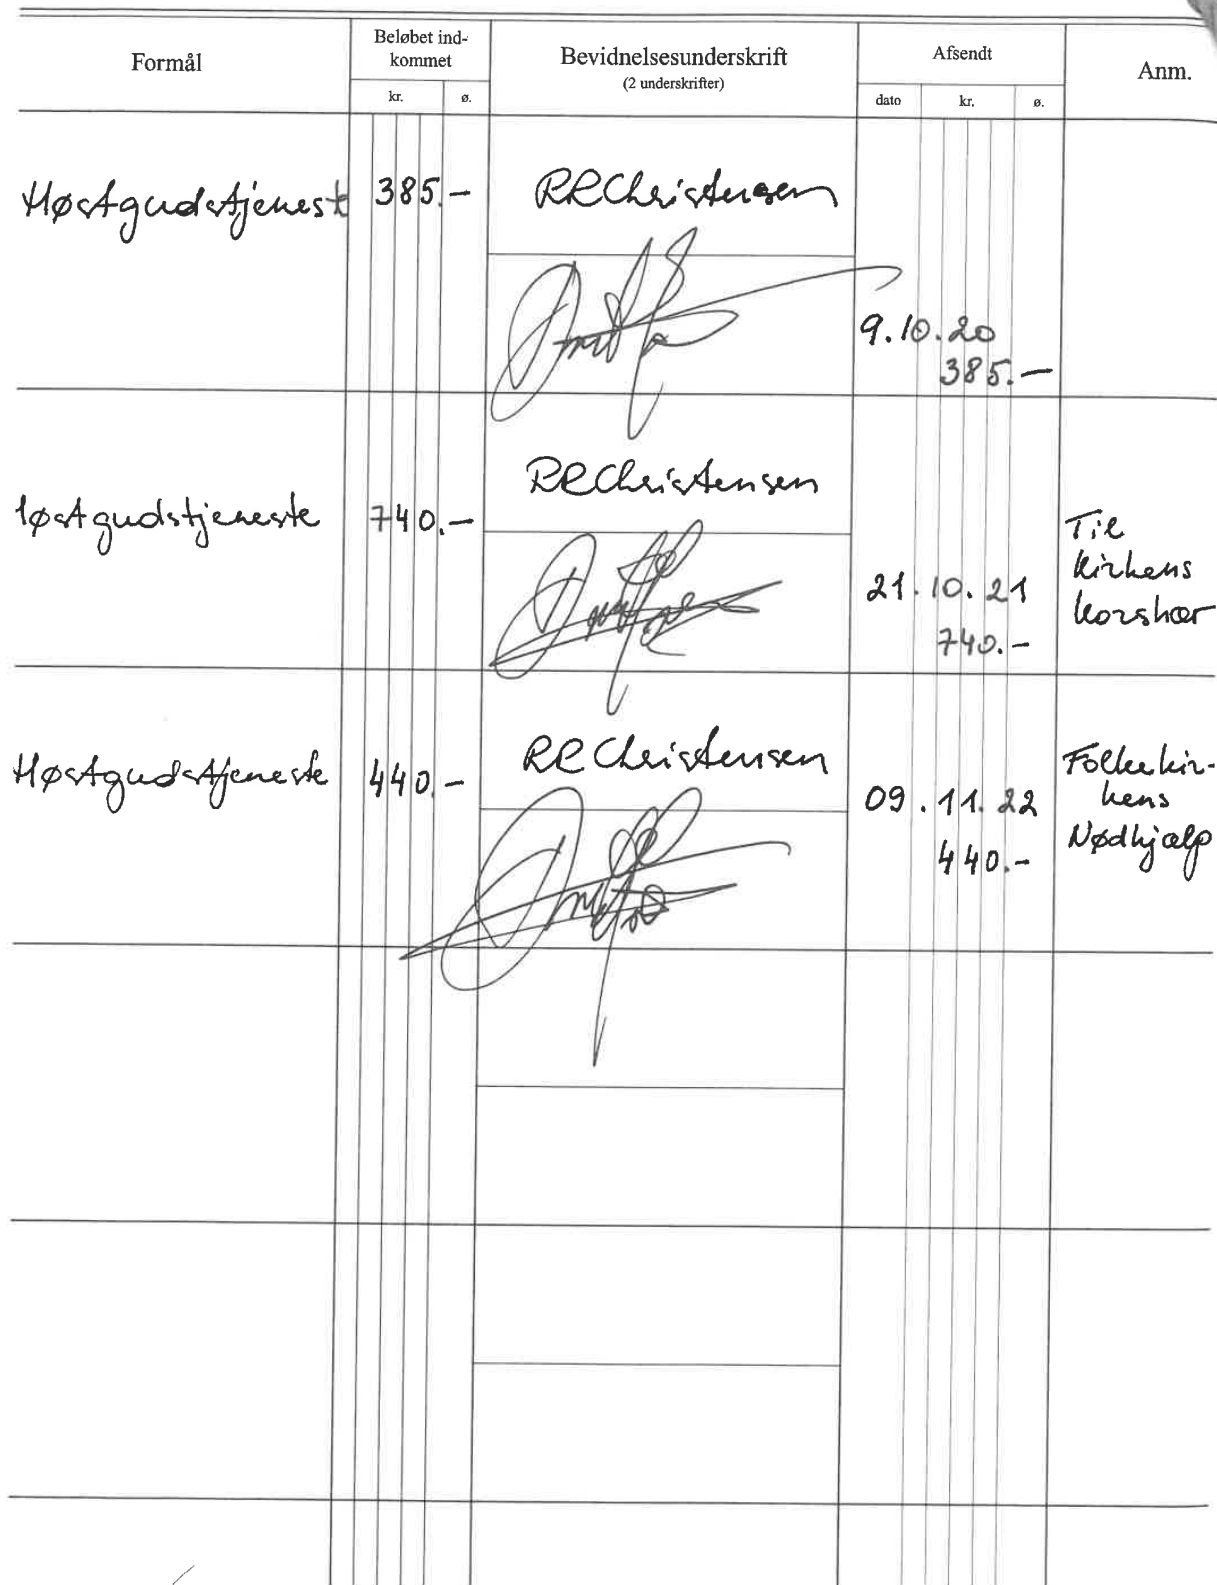 Formål
Beløbet ind-
kommet
kr. ø.
Bevidnelsesunderskrift
(2 underskrifter)
Afsendt
dato kr. ø.
Anm.
Høstgudstjenest 385.-
RRChristensen
9.10.20
385.-
høstgudstjeneste 740.-
RRChristensen
21.10.21
740.-
Til
Kirkens
Korshær
Høstgudstjeneste 440.-
RRChristensen
09.11.22
440.-
Folkekir-
kens
Nødhjælp